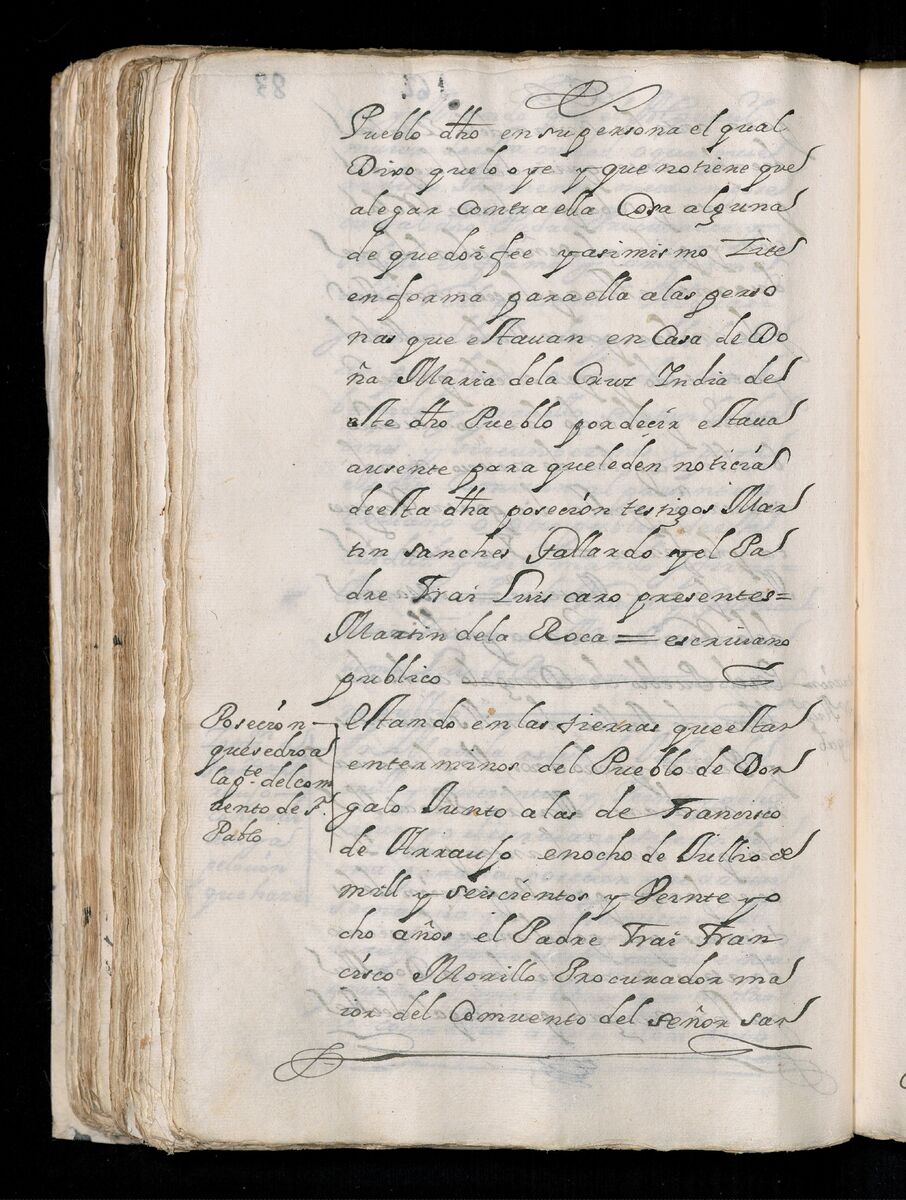 Pueblo dho ensupersona el qual
Dixo quelo oye y que notiene que
alegar Contraella Cosa alguna
de quedoi fee yasimismo Zite
en forma paraella alas perso
nas que estauan en Casa de Do
ña Maria dela Cruz India de
este dho Pueblo pordecir estaua
ausente para queleden noticia
deesta dha poseción testigos Mar
tin sanches Gallardo yel Pa
dre Frai Luis caro presentes=
Martin dela Roca = escriuano
publico
Poseción
quesedio a
la gte. delcom
uento de S.
Pablo
Estando en las tierras queestan
enterminos del Pueblo de Don
galo Junto alas de Francisco
de Arrauso enocho de Jullio de
mill y seiscientos y Veinte yo
cho años el Padre Frai Fran
cisco Morillo Procurador ma
ior del Comuento del señor san